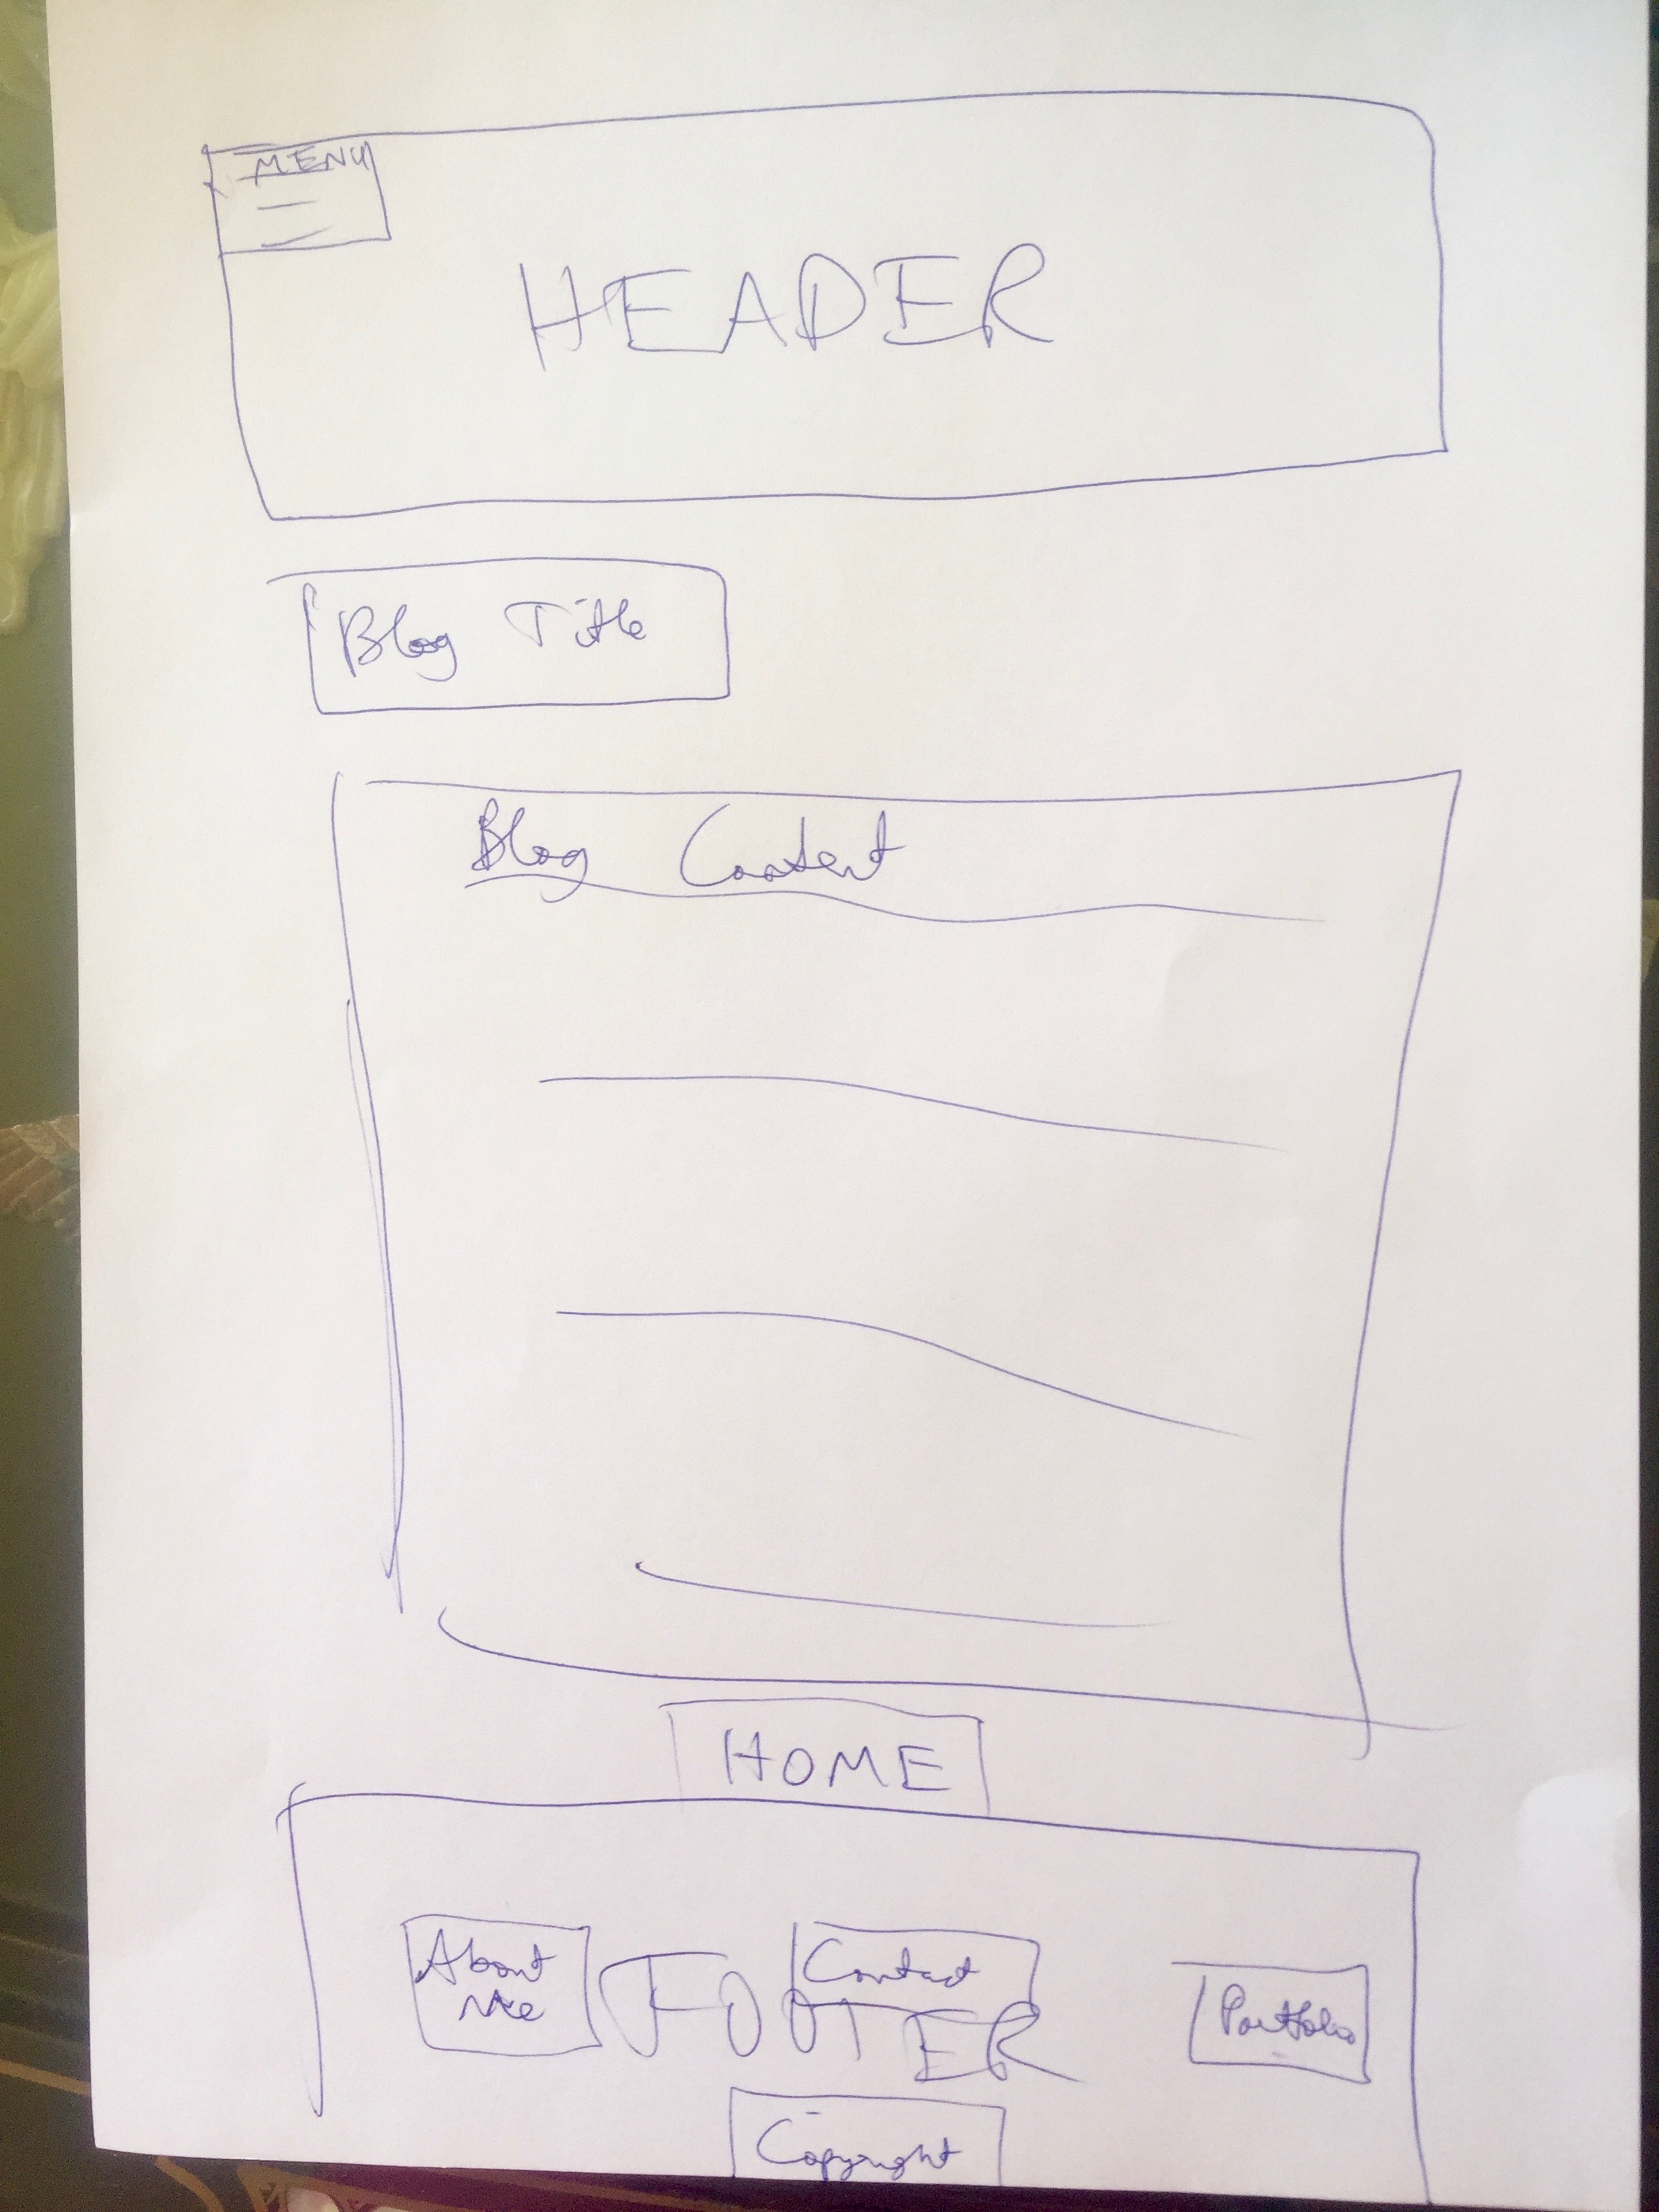 MENU
HEADER
Blog Title
Blog Content
HOME
About
Me
Contact
FOOTER
Portfolio
Copyright